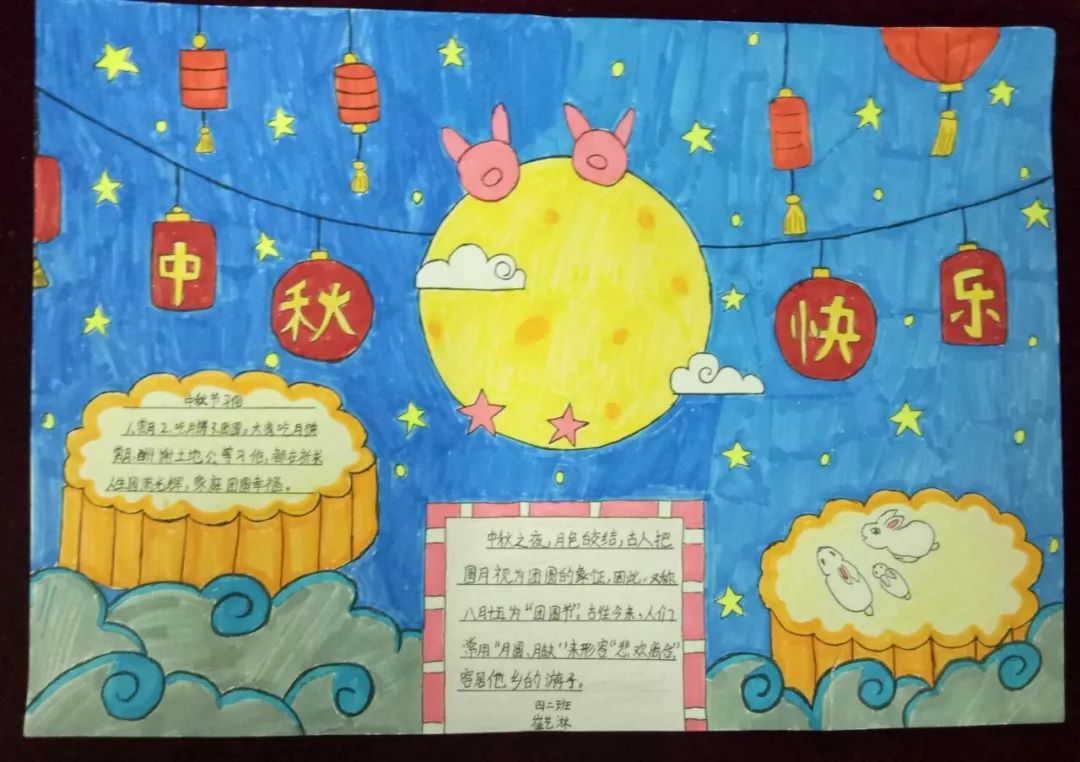 中
秋
快
乐
中秋节习俗
1.赏月2.吃月饼3.团圆。大家吃月饼
赏月.酬谢土地公等习俗,都在祈求
人生圆满光辉,家庭团圆幸福。
中秋之夜,月色皎结,古人把
圆月视为团圆的象征,因此,又称
八月十五为“团圆节”。古往今来,人们
常用“月圆、月缺”来形容“悲欢离合”
客居他乡的游子。
四二班
崔艺淋